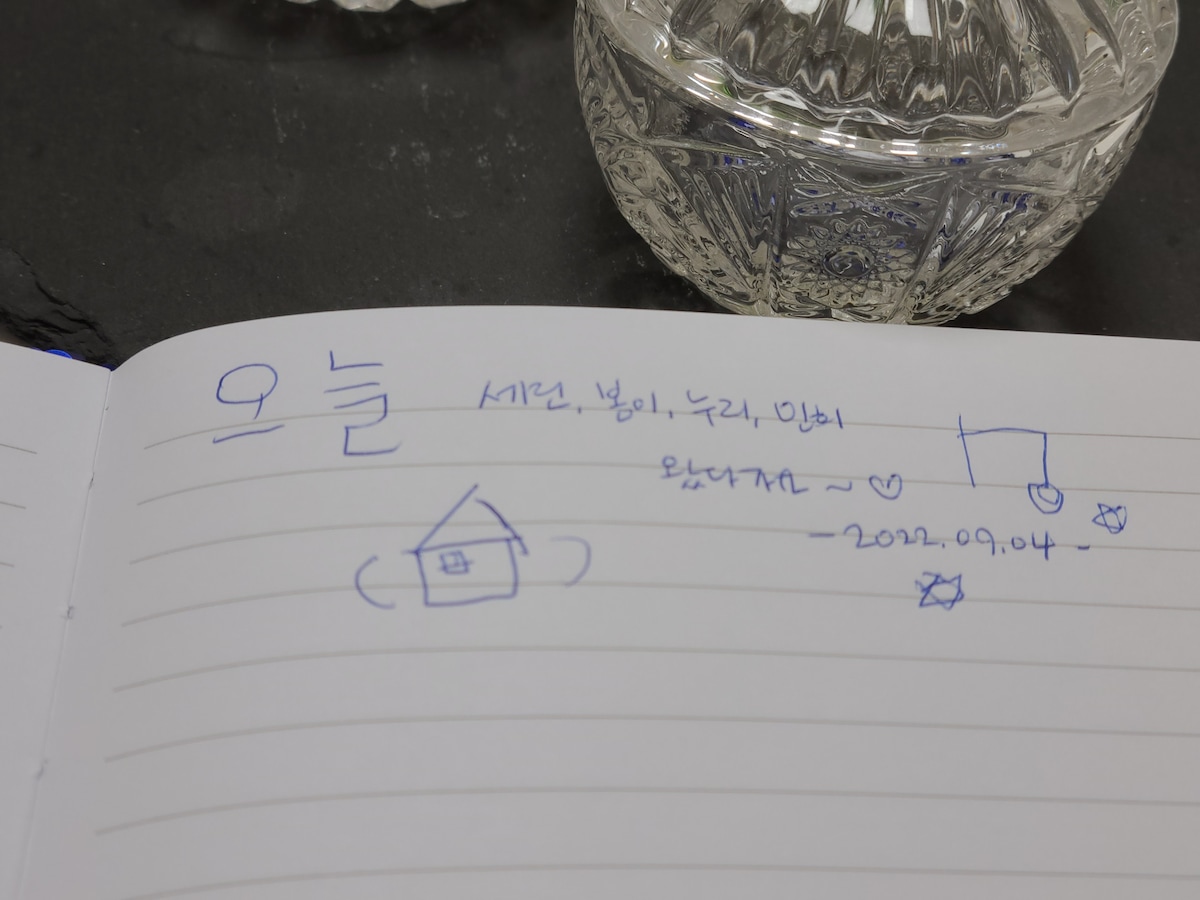 오늘 세린, 봉이, 누리, 민희
왔다가요 ~ ♡
- 2022.09.04 -